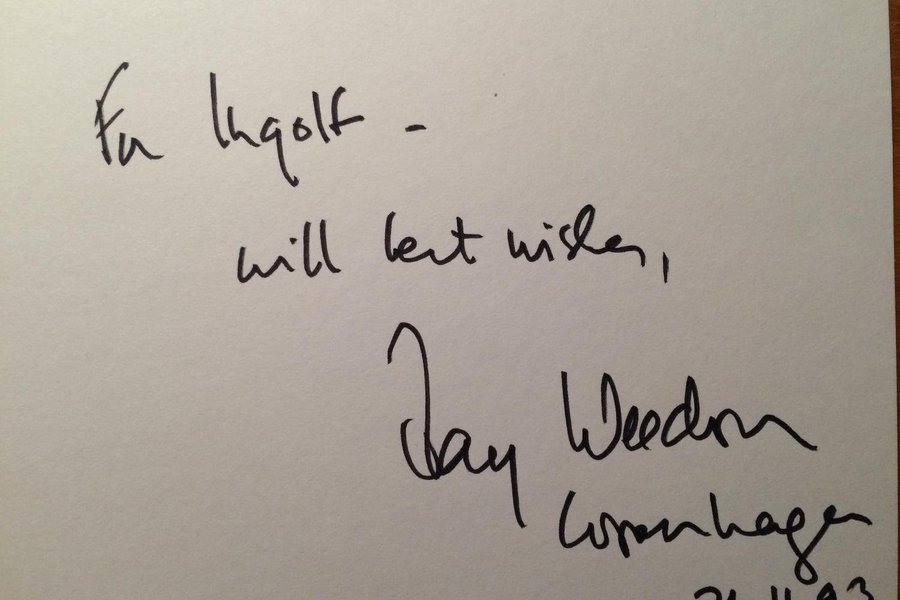 For Ingolf -
with best wishes,
Jay Weedon
Copenhagen